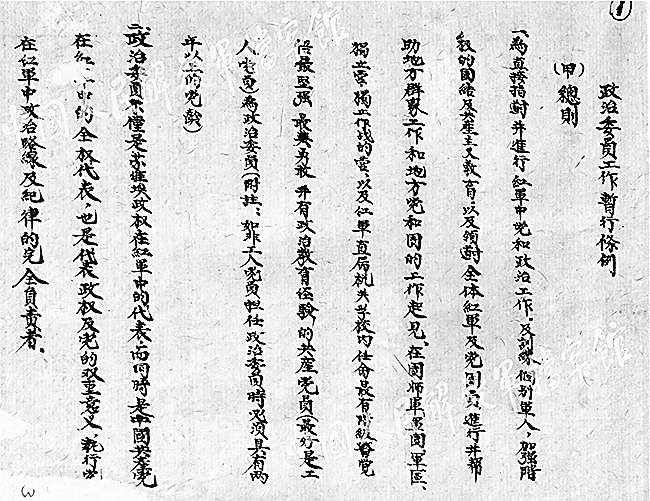 1
政治委員工作暫行條例
(甲)總則
一、為直接指導并進行紅軍中党和政治工作，及訓練個別軍人，加強階
級的團結及共產主义教育，以及領導全体紅軍及党團員進行并帮
助地方群眾工作和地方党和团的工作起見，在團師軍軍團軍區、
獨立营獨立作战的营，以及红軍直屬机关学校内任命最有階級覺悟
最坚强最勇敢并有政治教育经驗的共產党員(最好是工
人党員)為政治委員(附註：如非工人党員担任政治委員時必須具有两
年以上的党龄)
二、政治委員不僅是苏維埃政权在紅軍中的代表，而同時是中國共產党
在紅軍中的全权代表，也是代表政权及党的双重意义，執行
在红軍中政治路線及紀律的完全負責者。